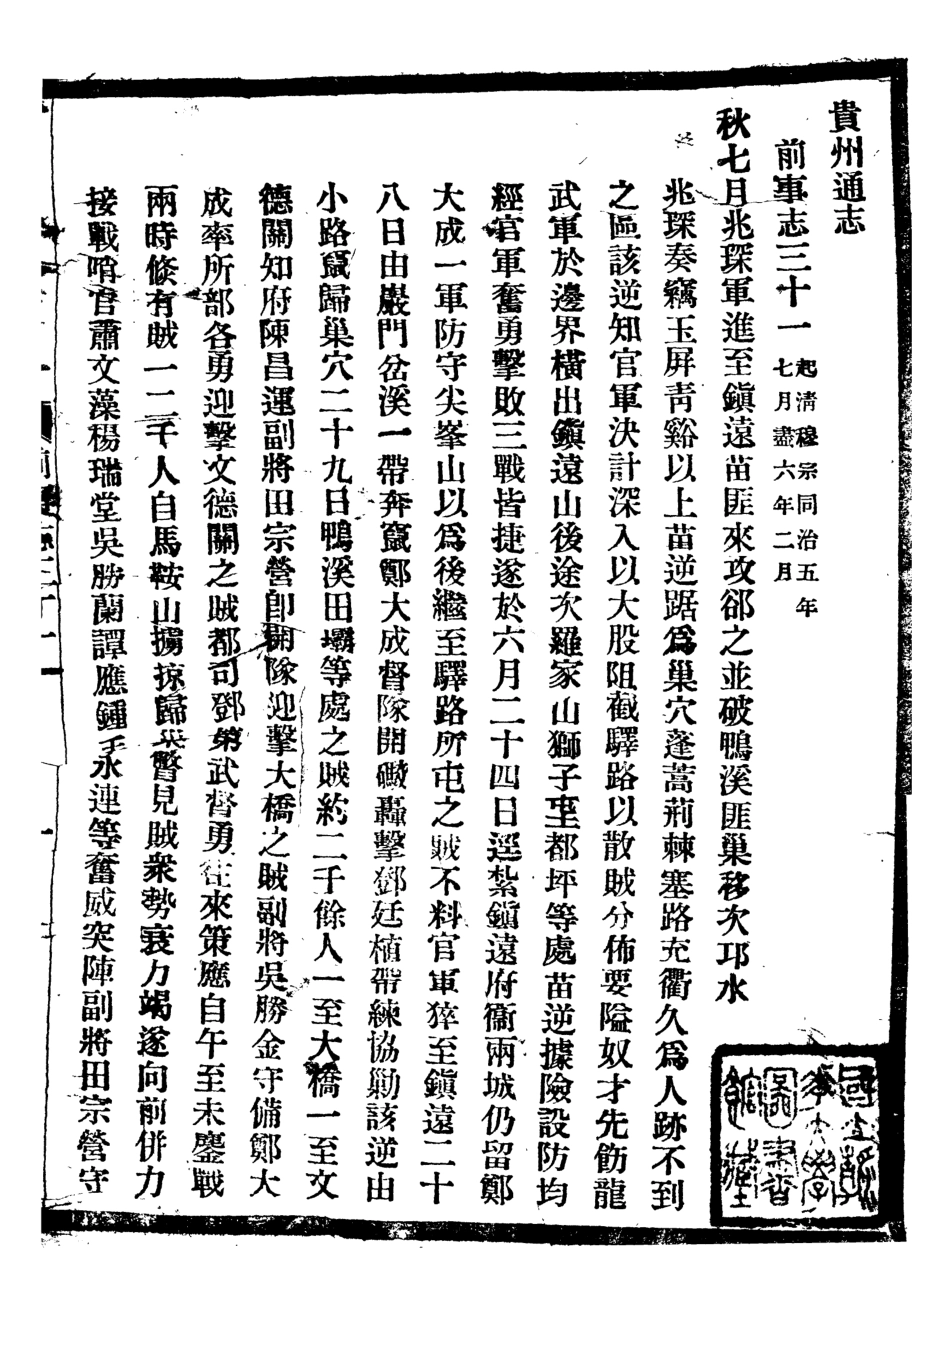 貴州通志
前事志三十一 起清穆宗同治五年七月盡六年二月
秋七月兆琛軍進至鎭遠苗匪來攻郤之並破鴨溪匪巢移次邛水
兆琛奏竊玉屏靑谿以上苗逆踞爲巢穴蓬蒿荊棘塞路充衢久爲人跡不到
之區該逆知官軍決計深入以大股阻截驛路以散賊分佈要隘奴才先飭龍
武軍於邊界橫出鎭遠山後途次羅家山獅子 都坪等處苗逆據險設防均
經官軍奮勇擊敗三戰皆捷遂於六月二十四日逕紮鎭遠府衞兩城仍留鄭
大成一軍防守尖峯山以爲後繼至驛路所屯之賊不料官軍猝至鎭遠二十
八日由巖門岔溪一帶奔竄鄭大成督隊開礮轟擊鄧廷植帶練協勦該逆由
小路竄歸巢穴二十九日鴨溪田壩等處之賊約二千餘人一至大橋一至文
德關知府陳昌運副將田宗營卽開隊迎擊大橋之賊副將吳勝金守備鄭大
成率所部各勇迎擊文德關之賊都司鄧第武督勇往來策應自午至未鏖戰
兩時倐有賊一二千人自馬鞍山擄掠歸來瞥見賊衆勢衰力竭遂向前併力
接戰哨官蕭文藻楊瑞堂吳勝蘭譚應鍾王永連等奮威突陣副將田宗營守
國立
大學
圖書
館藏